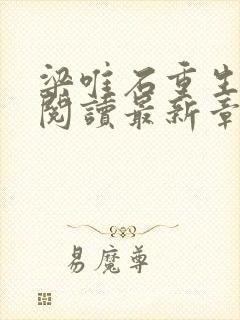 梁唯石重生
閱讀最新章
易魔尊